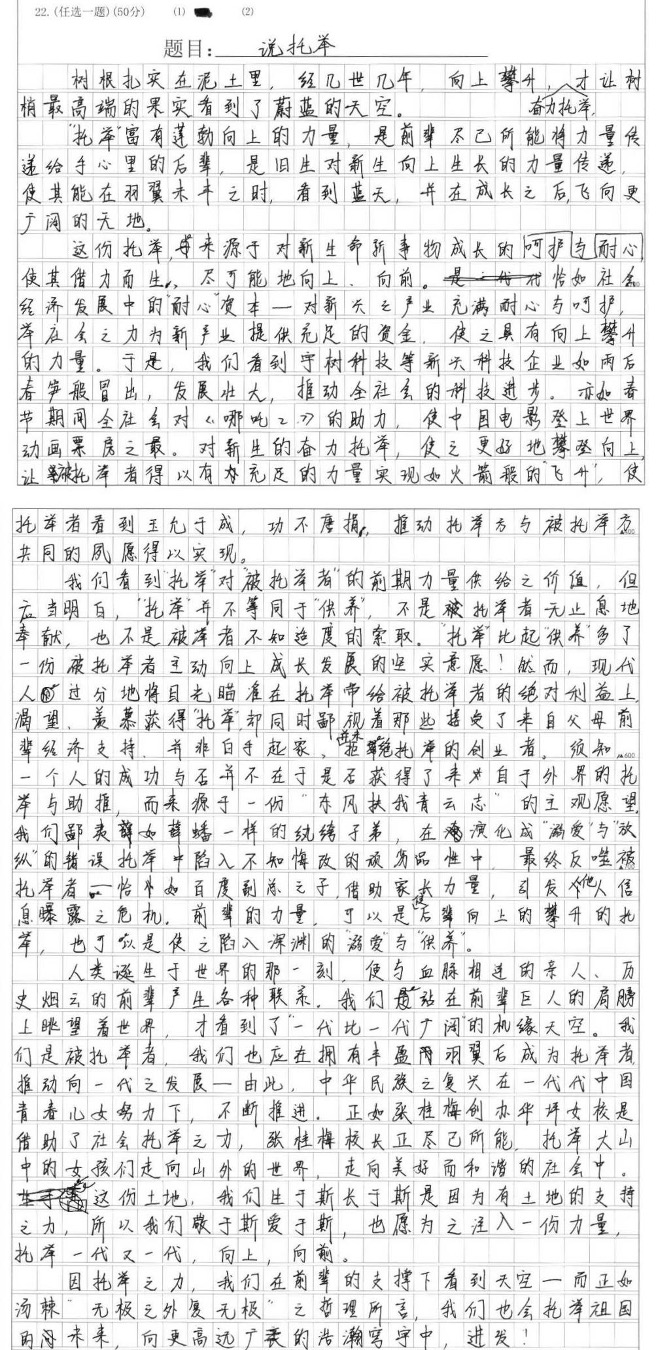 22.(任选一题)(50分) (1) (2)
题目: 说托举
树根扎实在泥土里，经几世几年，向上攀升，才让树
奋力托举，
梢最高端的果实看到了蔚蓝的天空。
“托举”富有蓬勃向上的力量，是前辈尽己所能将力量传
递给手心里的后辈，是旧生对新生向上生长的力量传递，
使其能在羽翼未丰之时，看到蓝天，并在成长之后飞向更
广阔的天地。
这份托举，来源于对新生命新事物成长的呵护与耐心，
使其借力而生，尽可能地向上、向前。恰如社会
经济发展中的“耐心”资本—对新兴之产业充满耐心与呵护，
举社会之力为新产业提供充足的资金，使之具有向上攀升
的力量。于是，我们看到宇树科技等新兴科技企业如雨后
春笋般冒出，发展壮大，推动全社会的科技进步。亦如春
节期间全社会对《哪吒2》的助力，使中国电影登上世界
动画票房之最。对新生的奋力托举，使之更好地攀登向上，
让被托举者得以有充足的力量实现如火箭般的“飞升”，使
托举者看到玉允于成，功不唐捐，推动托举方与被托举方
共同的夙愿得以实现。
我们看到“托举”对“被托举者”的前期力量供给之价值，但
应当明白，“托举”并不等同于“供养”，不是被托举者无止息地
奉献，也不是被举者不知适度的索取。“托举”比起“供养”多了
一份被托举者主动向上成长发展的坚实意愿！然而，现代
人过分地将目光瞄准在托举带给被托举者的绝对利益上，
渴望、羡慕获得“托举”，却同时鄙视着那些接受了来自父母前
辈经济支持、并非白手起家、并未拒绝托举的创业者。须知
一个人的成功与否并不在于是否获得了来自于外界的托
举与助推，而来源于一份“东风扶我青云志”的主观愿望
我们鄙夷如薛蟠一样的纨绔子弟，在演化成“溺爱”与“放
纵”的错误托举中陷入不知悔改的顽劣品性中，最终反噬被
托举者—恰如百度副总之子，借助家长力量，引发他人信
息曝露之危机。前辈的力量，可以是使后辈向上的攀升的托
举，也可以是使之陷入深渊的“溺爱”与“供养”。
人类诞生于世界的那一刻，便与血脉相连的亲人、历
史烟云的前辈产生各种联系。我们站在前辈巨人的肩膀
上眺望着世界，才看到了“一代比一代广阔”的机缘天空。我
们是被托举者，我们也应在拥有丰盈羽翼后成为托举者，
推动向一代之发展—由此，中华民族之复兴在一代代中国
青春儿女努力下，不断推进。正如张桂梅创办华坪女校是
借助了社会托举之力，张桂梅校长正尽己所能，托举大山
中的女孩们走向山外的世界，走向美好而和谐的社会中。
这份土地，我们生于斯长于斯是因为有土地的支持
之力，所以我们敬于斯爱于斯，也愿为之注入一份力量，
托举一代又一代，向上，向前。
因托举之力，我们在前辈的支撑下看到天空—而正如
汤棘“无极之外复无极”之哲理所言，我们也会托举祖国
的未来，向更高远广袤的浩瀚穹宇中，进发！